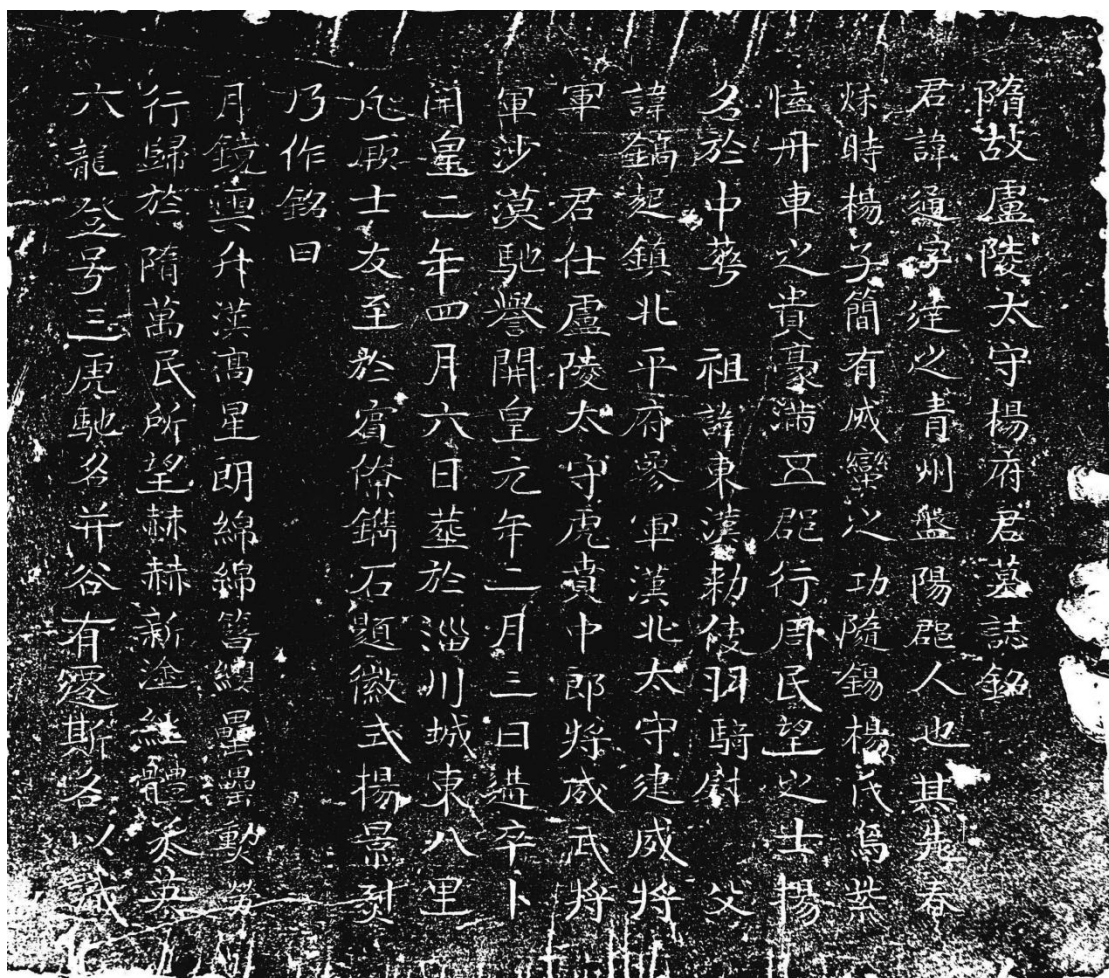 隋故盧陵太守楊府君墓誌銘
君諱通字達之青州盤陽郡人也其先春
秌時楊子簡有威蠻之功隨錫楊氏焉紫
愭丹車之貴豪滿五郡行周民望之士揚
名於中華 祖諱東漢勅使羽騎尉 父
諱鎬起鎮北平府叅軍漢北太守建威將
軍 君仕盧陵太守虎賁中郎將威武將
軍沙漠馳譽開皇元年二月三日遘卒卜
開皇二年四月六日塟於淄川城東八里
凡厥士友至於賓僚鐫石題徽式揚景烈
乃作銘曰
月鏡輿升漢高星朗綿綿簪纓壘壘勲勞
行歸於隋萬民所望赫赫新塗紅體丞英
六龍登号三虎馳名并谷有窆斯名以識